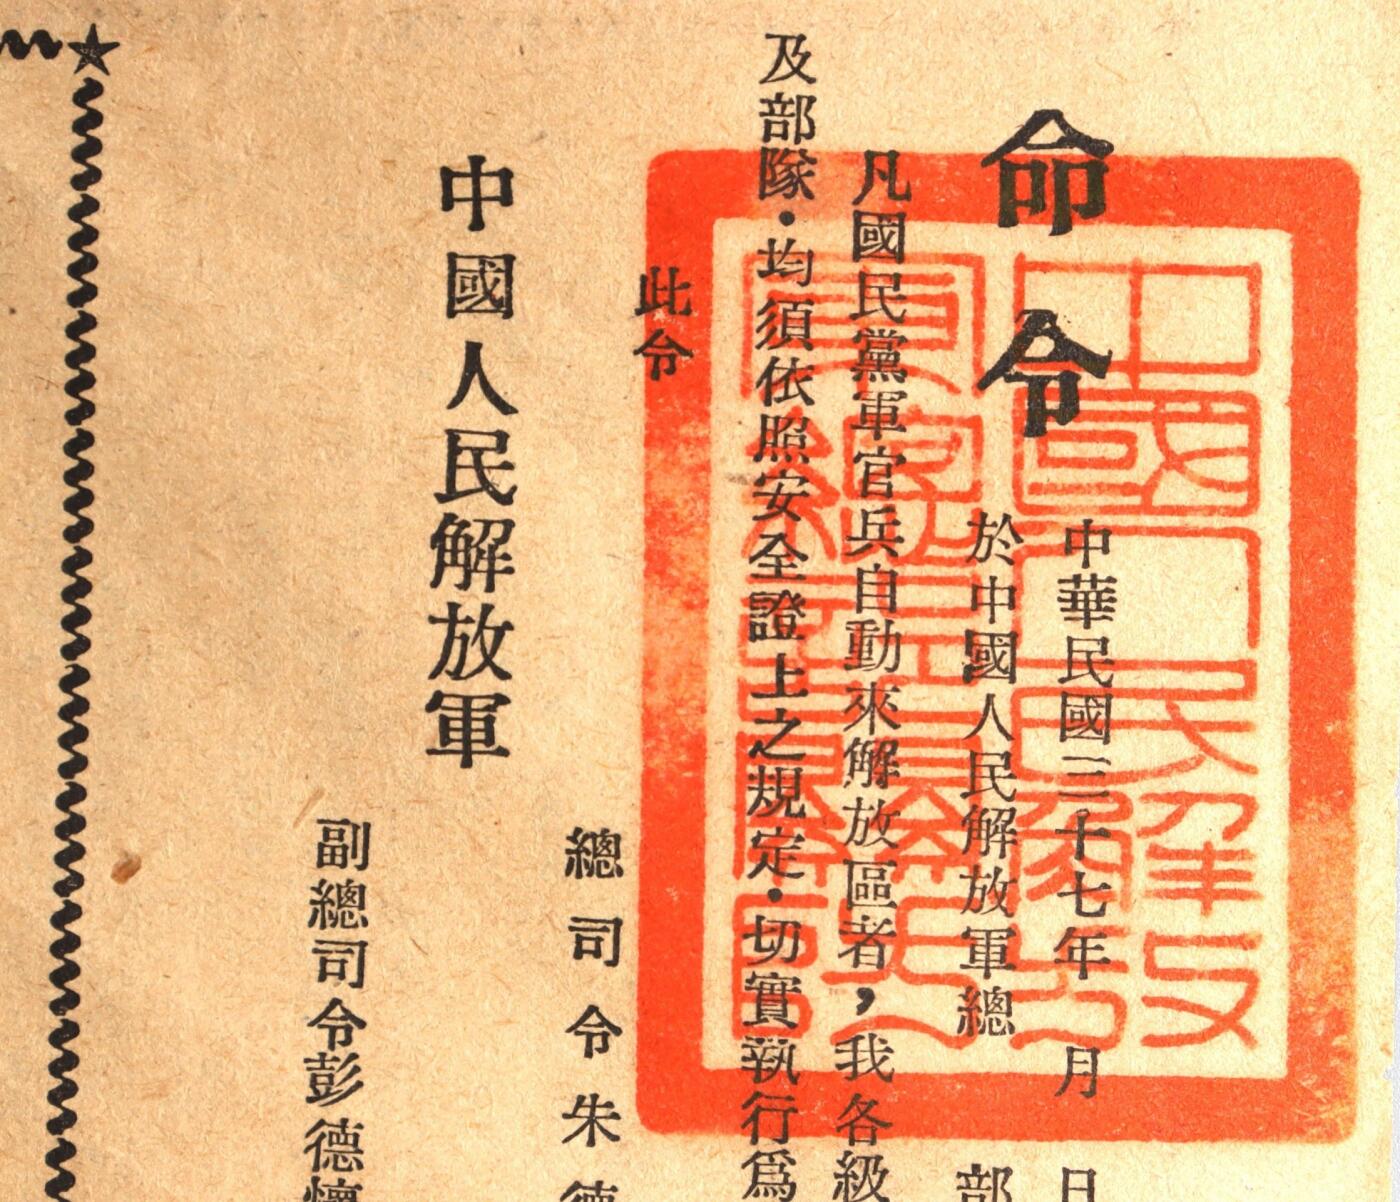 命令
中華民國三十七年 月 日
於中國人民解放軍總 部
凡國民黨軍官兵自動來解放區者，我各級
及部隊・均須依照安全證上之規定・切實執行爲
此令
中國人民解放軍
總司令朱德
副總司令彭德懷
中國人民解放
軍總司令部印